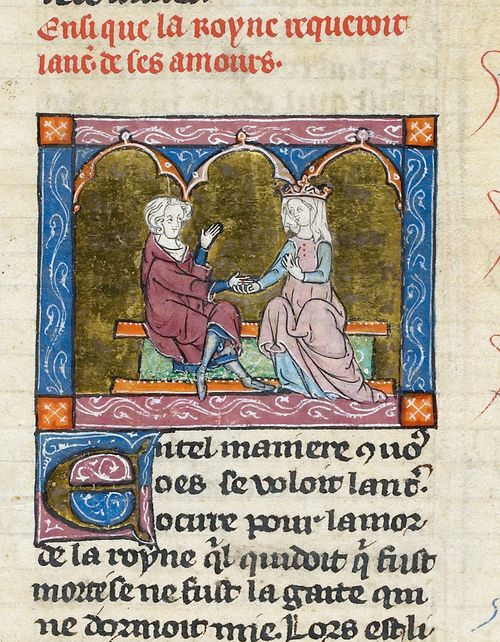 Ensi que la Royne requeroit
lanc̃. de ses amours.
Entel maniere ꝯ uoꝰ
oes se voloit lanc̃.
ocirre pour lamor
de la royne q̃l quidoit q̃ fust
morte se ne fust la gaite qui
ne dormoit mie. Lors est li